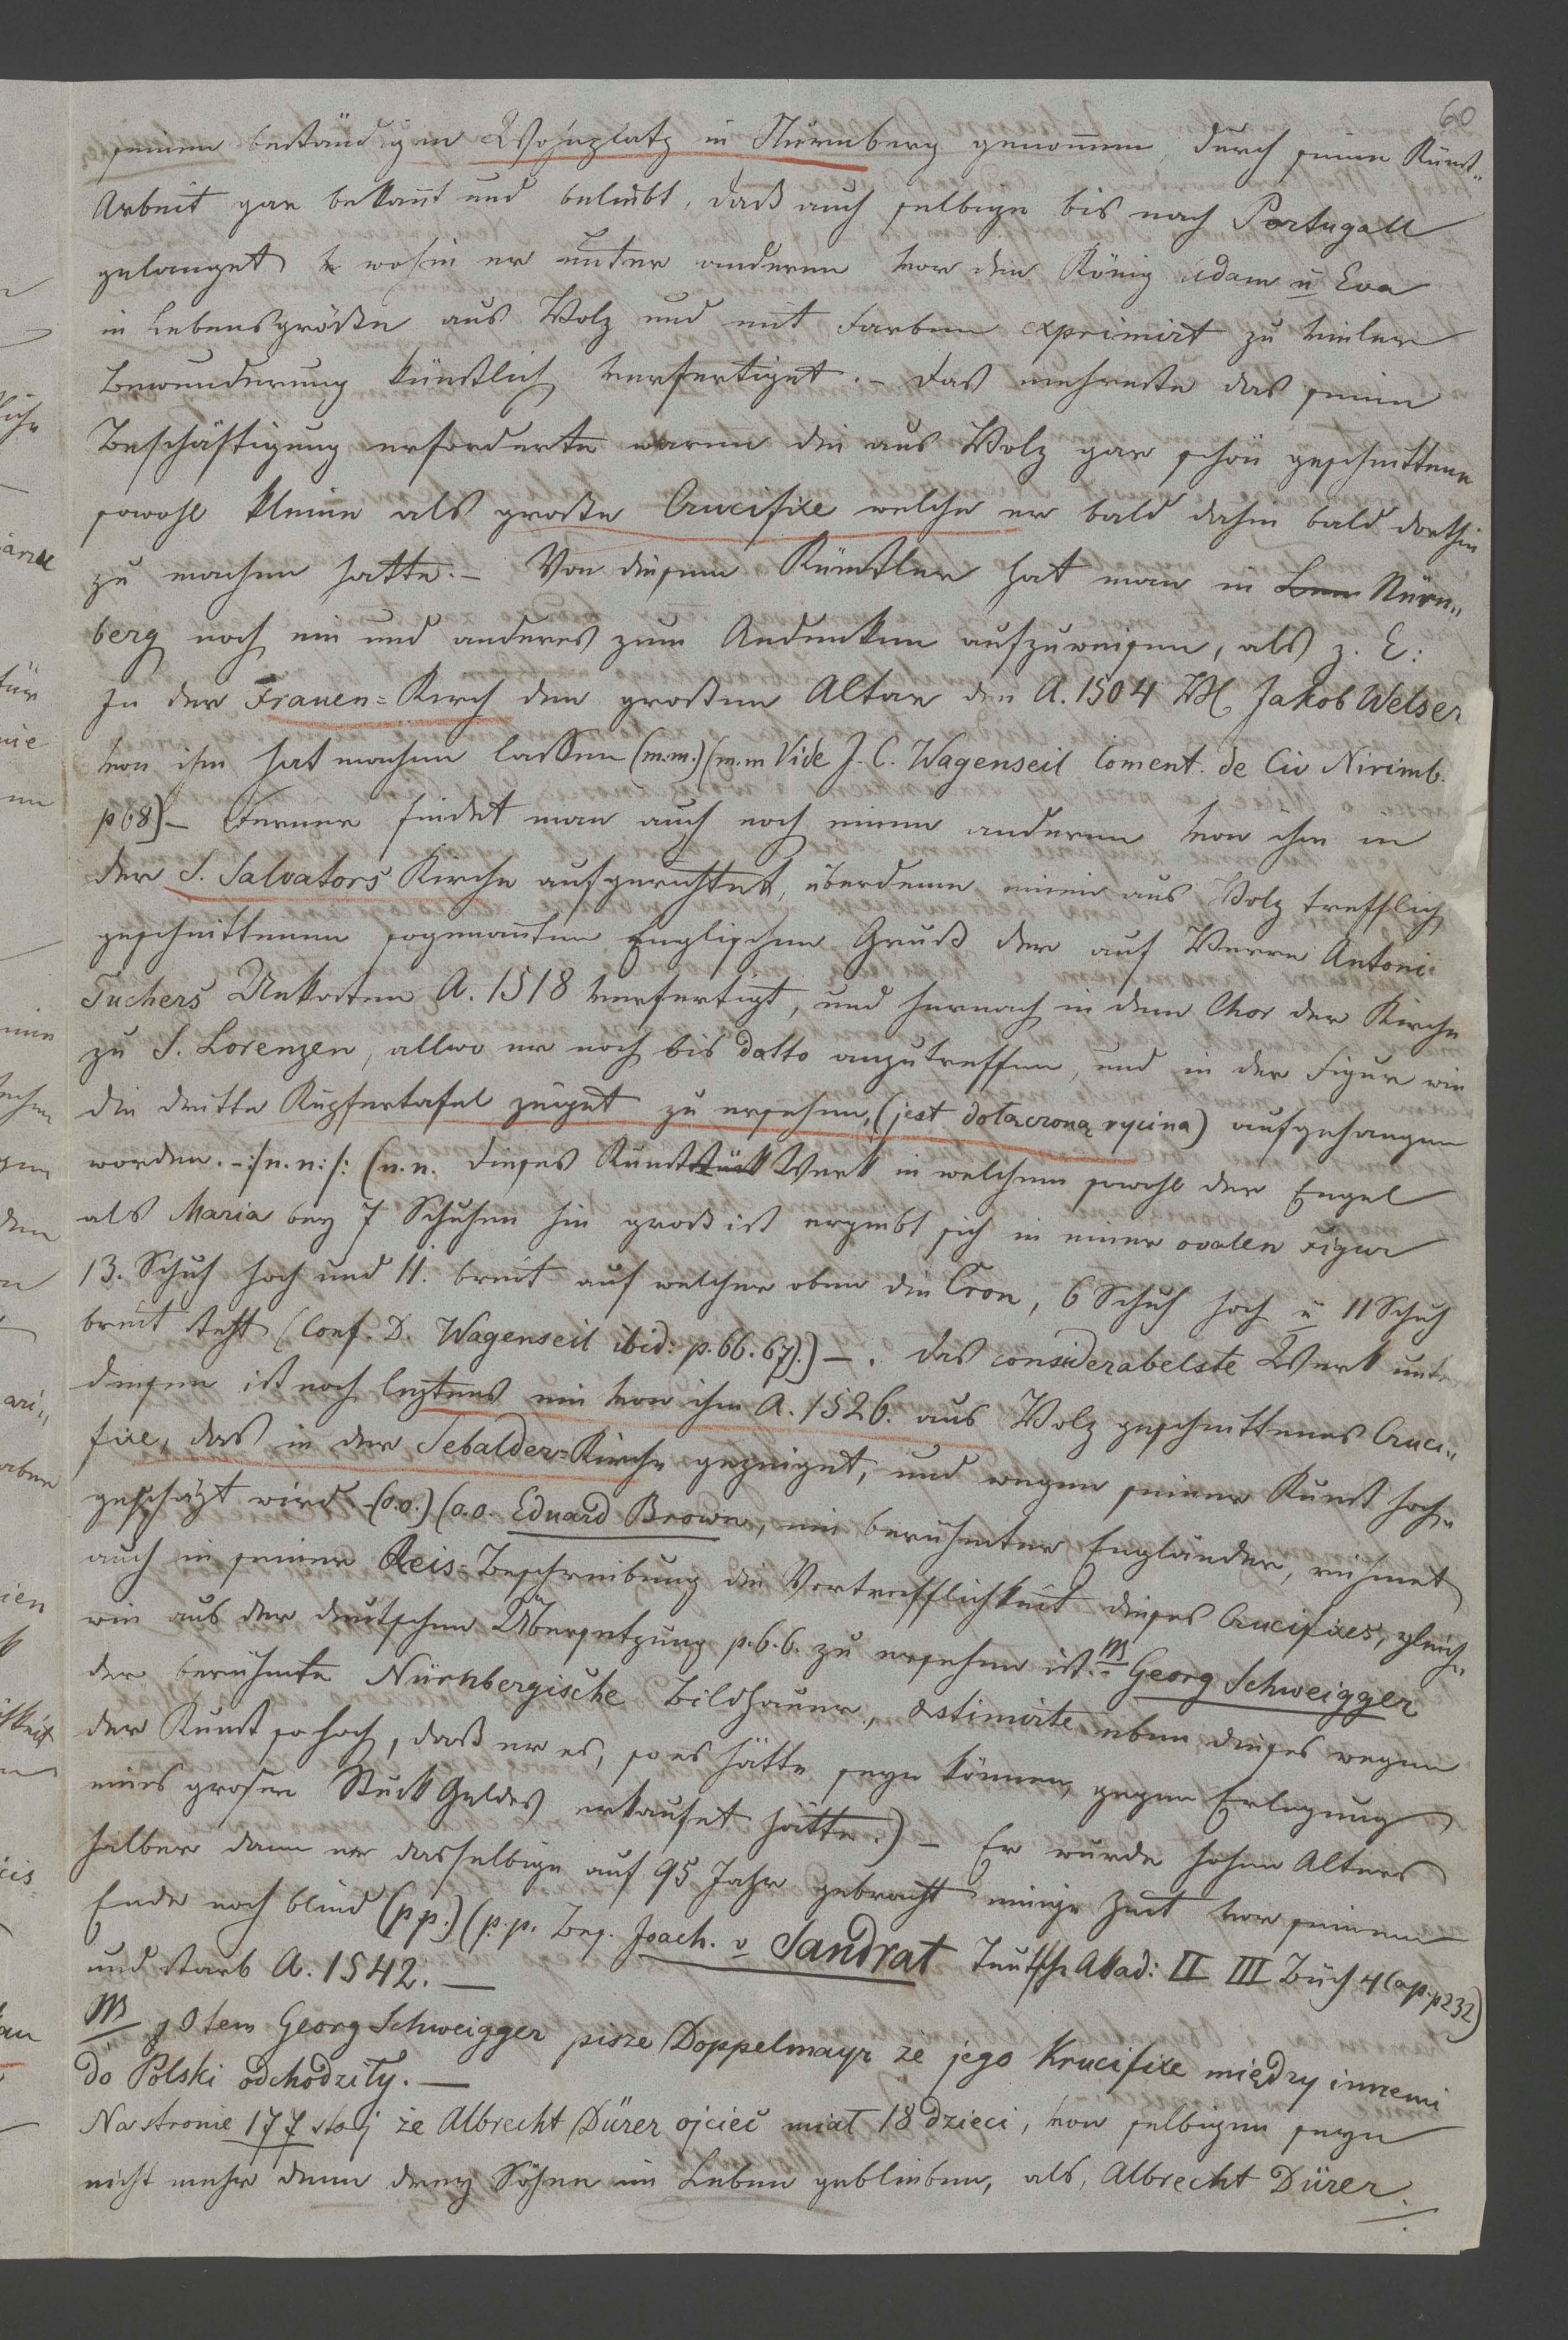 60
seinen beständigen Wohnplatz in Nürnberg genommen, durch seine Kunst„
Arbeit gar bekant und beliebt, daß auch selbige bis nach Portugall
gelanget, wohin er unter anderen vor den König Adam u Eva
in Lebensgröße aus Holz und mit Farben exprimirt zu vieler
Bewunderung künstlich verfertiget. – Das mehreste das seine
Beschäftigung erforderte waren die aus Holz gar schön geschnittene
sowohl kleine als große Crucifixe welche er bald dahin bald dorthin
zu machen hatte. – Von diesem Künstler hat man in Nürn„
berg noch ein und anderes zum Andenken aufzuweisen, als z. E:
In der Frauen=Kirch den großen Altar den A. 1504 H. Jakob Welser
von ihm hat machen lassen (m.m.) (m.m Vide J. C. Wagenseil Coment. de Civ Nirimb.
p 68) – Ferner findet man auch noch einen anderen von ihm in
der S. Salvators Kirche aufgerichtet, überdeme einen aus Holz trefflich
geschnittenen sogenanten Englischen Gruß der auf Herrn Antoni
Tuchers Unkosten A. 1518 verfertigt, und hernach in dem Chor der Kirche
zu S. Lorenzen, allwo er noch bis datto anzutreffen, und in der Figur wie
die dritte Kupfertafel zeiget zu ersehen, (jest dołączona rycina) aufgehangen
worden. –:/n.n:/: (n.n. dieses Kunststück Werk in welchem sowohl der Engel
als Maria bey 7 Schuhen hin groß ist ergiebt sich in einer ovalen Figur
13. Schuh hoch und 11. breit auf welcher oben die Cron, 6 Schuh hoch u 11 Schuh
breit steht (Conf. D. Wagenseil ibid: p. 66. 67).) – . das considerabelste Werk unter
diesen ist noch leztens ein von ihm A. 1526. aus Holz geschnittenes Cruci„
fixe, das in der Sebalder=Kirche gezeiget, und wegen seiner Kunst hoch„
geschäzt wird. –(o.o.) (o.o. Eduard Brown, ein berühmter Engländer, rühmet
auch in seiner Reis=Beschreibung die Vortrefflichkeit dieses Crucifixes, gleich„
wie aus der deutschen Übersetzung p. 6.6. zu ersehen ist. – M Georg Schweigger
der berühmte Nürnbergische Bildhauer, æstimirte eben dieses wegen
der Kunst so hoch, daß er es, so es hätte seyn können, gegen Erlegung
eines großen Stuck Geldes erkaufet hätte.) – Er wurde hohen Alters
halber dann er dasselbige auf 95 Jahr gebracht einige Zeit vor seinem
Ende noch blind (p p.) (p. p. Bes. Joach. v Sandrat Teutsche Akad: II III Buch 4 Cap. p 232)
und starb A. 1542. —
M O tem Georg Schweigger pisze Doppelmayr że jego Krucifixe między innemi
do Polski odchodziły. —
Na stronie 177 stoj że Albrecht Dürer ojciec miał 18 dzieci, von selbigen seyn
nicht mehr denn drey Söhne im Leben geblieben, als, Albrecht Dürer.